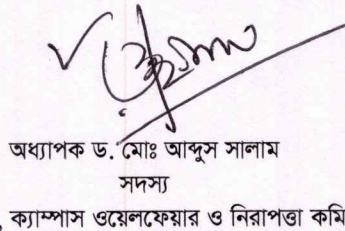 অধ্যাপক ড. মোঃ আব্দুস সালাম
সদস্য
, ক্যাম্পাস ওয়েলফেয়ার ও নিরাপত্তা কমি